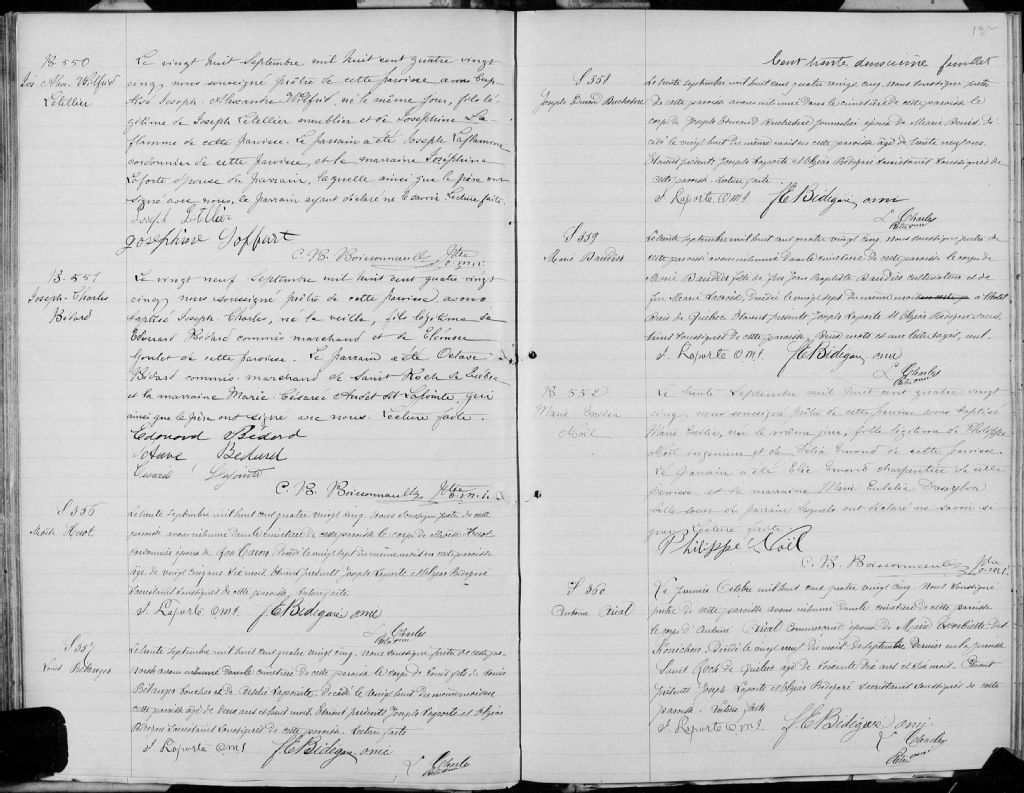 B 550
Jos. Alex. Wilfrid
Letellier
Le vingt huit Septembre mil huit cent quatre vingt
cinq nous soussigné prêtre de cette paroisse avons bap-
tisé Joseph-Alexandre Wilfrid, né le même jour, fils lé-
gitime de Joseph Letellier meublier et de Josephine La-
flamme de cette paroisse. Le parrain a été Joseph Laflamme
cordonnier de cette paroisse, et la marraine Joséphine
Laforte épouse du parrain, laquelle ainsi que le père ont
signé avec nous, le parrain ayant déclaré ne le savoir. Lecture faite.
Joseph Letllier
Josephine
C. B. Boissonnault, Ptre
o.m.i.
B. 551
Joseph-Charles
Bédard
Le vingt neuf Septembre mil huit cent quatre vingt
cinq nous soussigné prêtre de cette paroisse, avons
baptisé Joseph-Charles, né la veille, fils légitime de
Edouard Bédard commis marchand et de Eléonore
Goulet de cette paroisse. Le parrain a été Octave
Bédard commis-marchand de Saint Roch de Québec
et la marraine Marie-Césarée Audet dit Lapointe, qui
ainsi que le père ont signé avec nous. Lecture faite.
Edouard Bédard
Octave Bedard
Lapointe
C. B. Boissonnault, Ptre
o.m.i.
S 556
Moïse Huot
Le trente septembre mil huit cent quatre vingt cinq, nous soussigné prêtre de cette
paroisse avons inhumé dans le cimetière de cette paroisse le corps de Moïse Huot
cordonnier époux de Caron, décédé le vingt sept du même mois en cette paroisse
âgé de vingt cinq ans six mois. Etaient présents Joseph Laporte et Elzéar Bédégaré
Sacristains soussignés de cette paroisse. Lecture faite
J. Laporte O.M.I. J E Bédégaré omi
L. Charles
Ptre omi
S 557
Louis Bélanger
Le trente septembre mil huit cent quatre vingt cinq, nous soussigné prêtre de cette pa-
roisse avons inhumé dans le cimetière de cette paroisse le corps de Louis fils de Louis
Bélanger boucher et de Lapointe. Décédé le vingt huit du même mois en
cette paroisse âgé de deux ans et huit mois. Etaient présents Joseph Laporte et Elzéar
Bédégaré Sacristains soussignés de cette paroisse. Lecture faite
J. Laporte O.M.I. J E Bédégaré omi
L. Charles
Ptre omi
132
Cent trente deuxième feuillet
S 558
Le trente septembre mil huit cent quatre vingt cinq, nous soussigné prêtre
de cette paroisse avons inhumé dans le cimetière de cette paroisse le
corps de Joseph Edmond Journalier époux de Marie Denis. Dé-
cédé le vingt huit du même mois en cette paroisse âgé de trente neuf ans.
Etaient présents Joseph Laporte et Elzéar Bédégaré Sacristains soussignés de
cette paroisse. Lecture faite.
J. Laporte O.M.I. J E Bédégaré omi
L. Charles
Ptre omi
S 559
Marie Baudier
Le trente septembre mil huit cent quatre vingt cinq, nous soussigné prêtre de
cette paroisse avons inhumé dans le cimetière de cette paroisse le corps de
Marie Baudier fille de feu Jean Baptiste Baudier cultivateur et de
feu Marie Lacroix, décédée le vingt sept du même mois à l'Hôtel
Dieu de Québec. Etaient présents Joseph Laporte et Elzéar Bédégaré Sacris-
tains soussignés de cette paroisse. mots nul.
J. Laporte O.M.I. J E Bédégaré omi
L. Charles
Ptre omi
B 552
Marie
Noël
Le trente Septembre mil huit cent quatre vingt
cinq, nous soussigné prêtre de cette paroisse avons baptisé
Marie née le même jour, fille légitime de Philippe
Noël ingénieur et de Délia Emond de cette paroisse.
Le parrain a été Elie Emond charpentier de cette
paroisse, et la marraine Marie Eulalie Dansylva
belle-soeur du parrain lesquels ont déclaré ne savoir si-
gner. Lecture faite
Philippe Noël
C. B. Boissonnault, Ptre
o.m.i.
S 560
Antoine
Le premier Octobre mil huit cent quatre vingt cinq, nous soussigné
prêtre de cette paroisse avons inhumé dans le cimetière de cette paroisse
le corps d'Antoine Commerçant époux de Marie
Décédé le vingt neuf du mois de Septembre dernier en la paroisse
Saint Roch de Québec âgé de soixante dix ans et six mois. Etaient
présents Joseph Laporte et Elzéar Bédégaré Sacristains soussignés de cette
paroisse. Lecture faite
J. Laporte O.M.I. J. E Bédégaré omi
L. Charles
Ptre omi